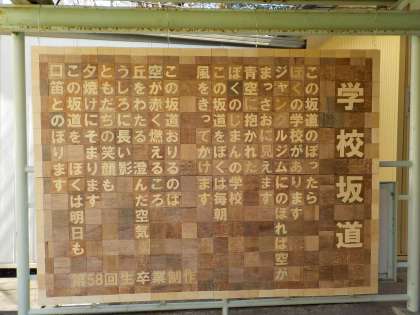 学校坂道
この坂道のぼったら
ぼくの学校があります
ジャングルジムにのぼれば空が
まっさおに見えます
青空に抱かれた
ぼくのじまんの学校
この坂道をぼくは毎朝
風をきってかけます
この坂道おりるのは
空が赤く燃えるころ
丘をわたる 澄んだ空気
うしろに長い影
ともだちの笑顔も
夕焼けにそまります
この坂道を ぼくは明日も
口笛とのぼります
第58回生卒業制作